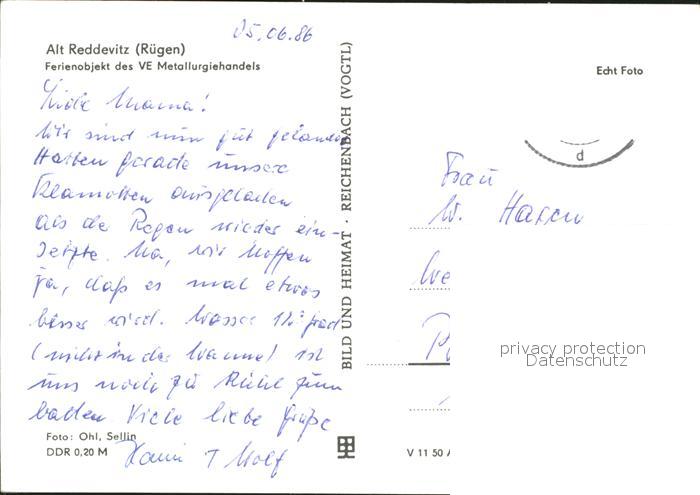 05.06.86
Alt Reddevitz (Rügen)
Ferienobjekt des VE Metallurgiehandels
Liebe Mama!
Wir sind nun gut gelandet
Hatten gerade unsere
Klamotten ausgeladen
als der Regen wieder ein-
setzte. Na, wir hoffen
ja, daß es mal etwas
besser wird. Wasser 12° grad
(nicht in der Wanne) ist
uns noch zu kühl zum
baden Viele liebe Grüße
Wolf
Foto: Ohl, Sellin
DDR 0,20 M
BILD UND HEIMAT · REICHENBACH (VOGTL)
Echt Foto
d
Frau
W.
We
P
V 11 50 A
privacy protection
Datenschutz